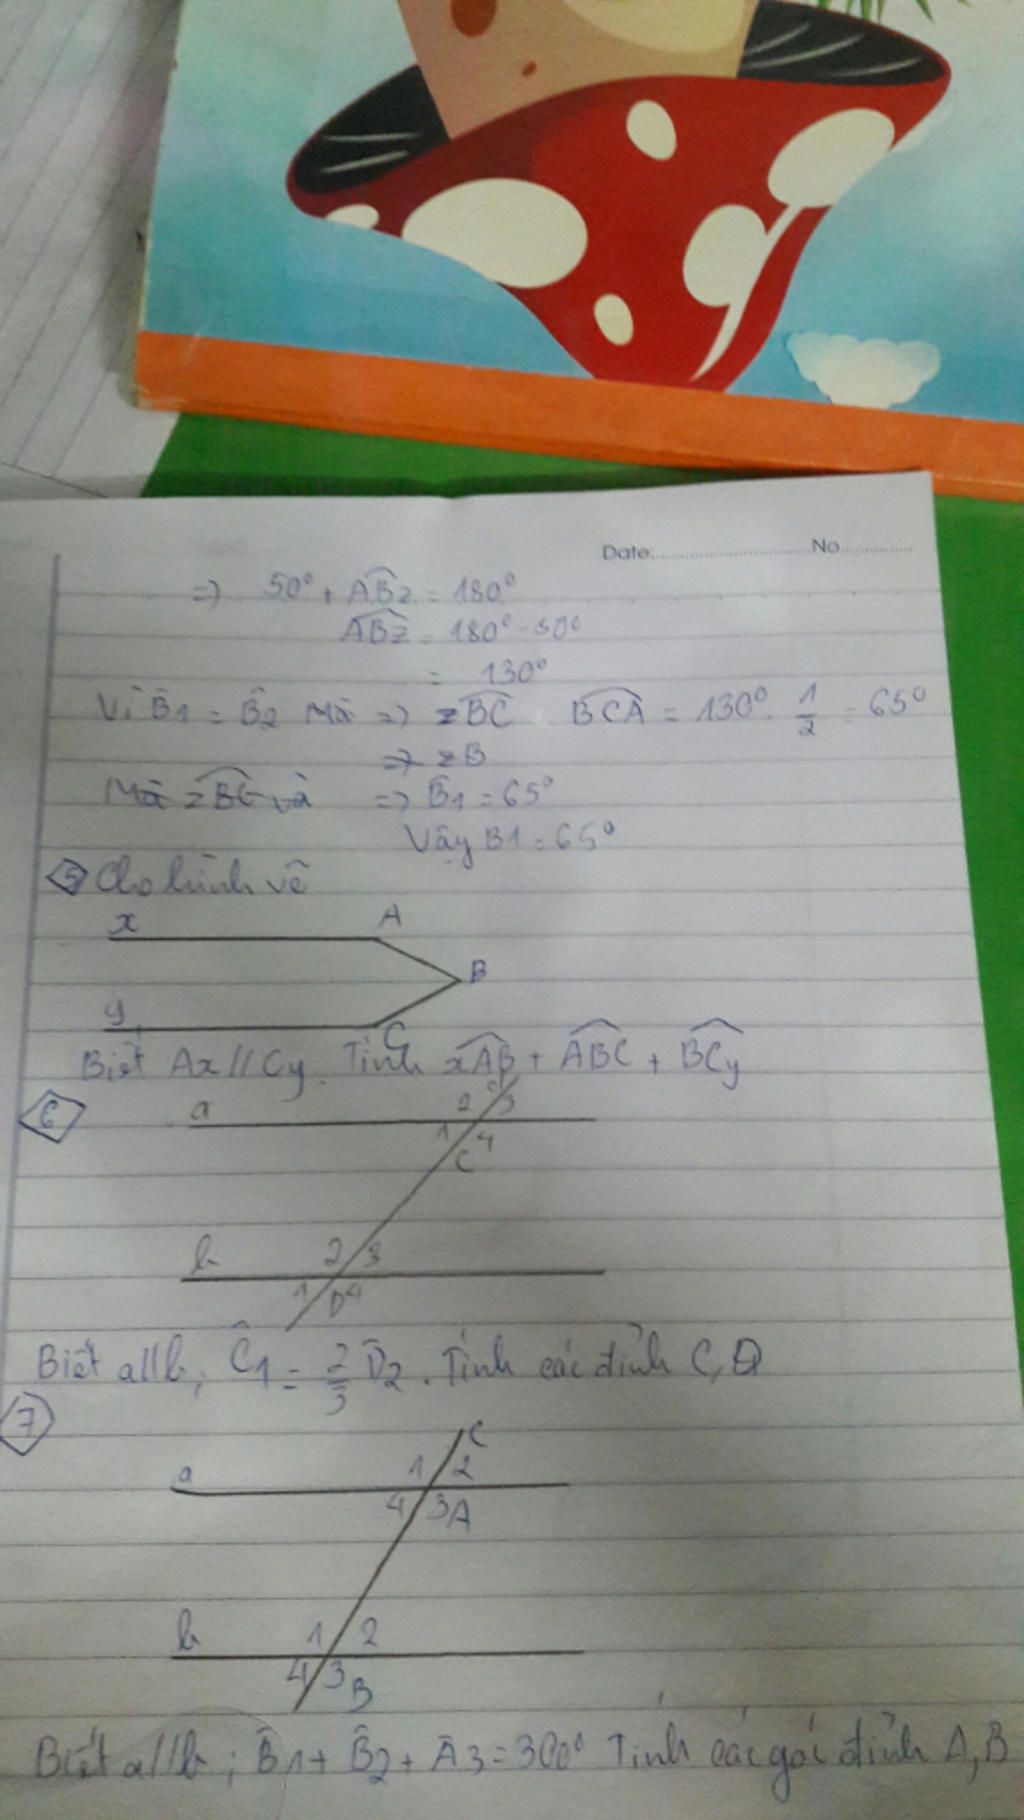 Date: No
=> 50° + ABz = 180°
ABz = 180° - 50°
= 130°
Vì B1 = B2 Mà => zBC BCA = 130° . 1/2 = 65°
=> zB
Mà zBC và => B1 = 65°
Vậy B1 = 65°
5 Cho hình vẽ
x A
B
y C
Biết Ax // Cy. Tính xAB + ABC + BCy
6 a 2 3
1 4
C
b 2 3
1 D 4
Biết a//b; C1 = 2/3 D2. Tính các đỉnh C, D
7
C
a 1 2
4 3 A
b 1 2
4 3 B
Biết a//b; B1 + B2 + A3 = 300° Tính các góc đỉnh A, B